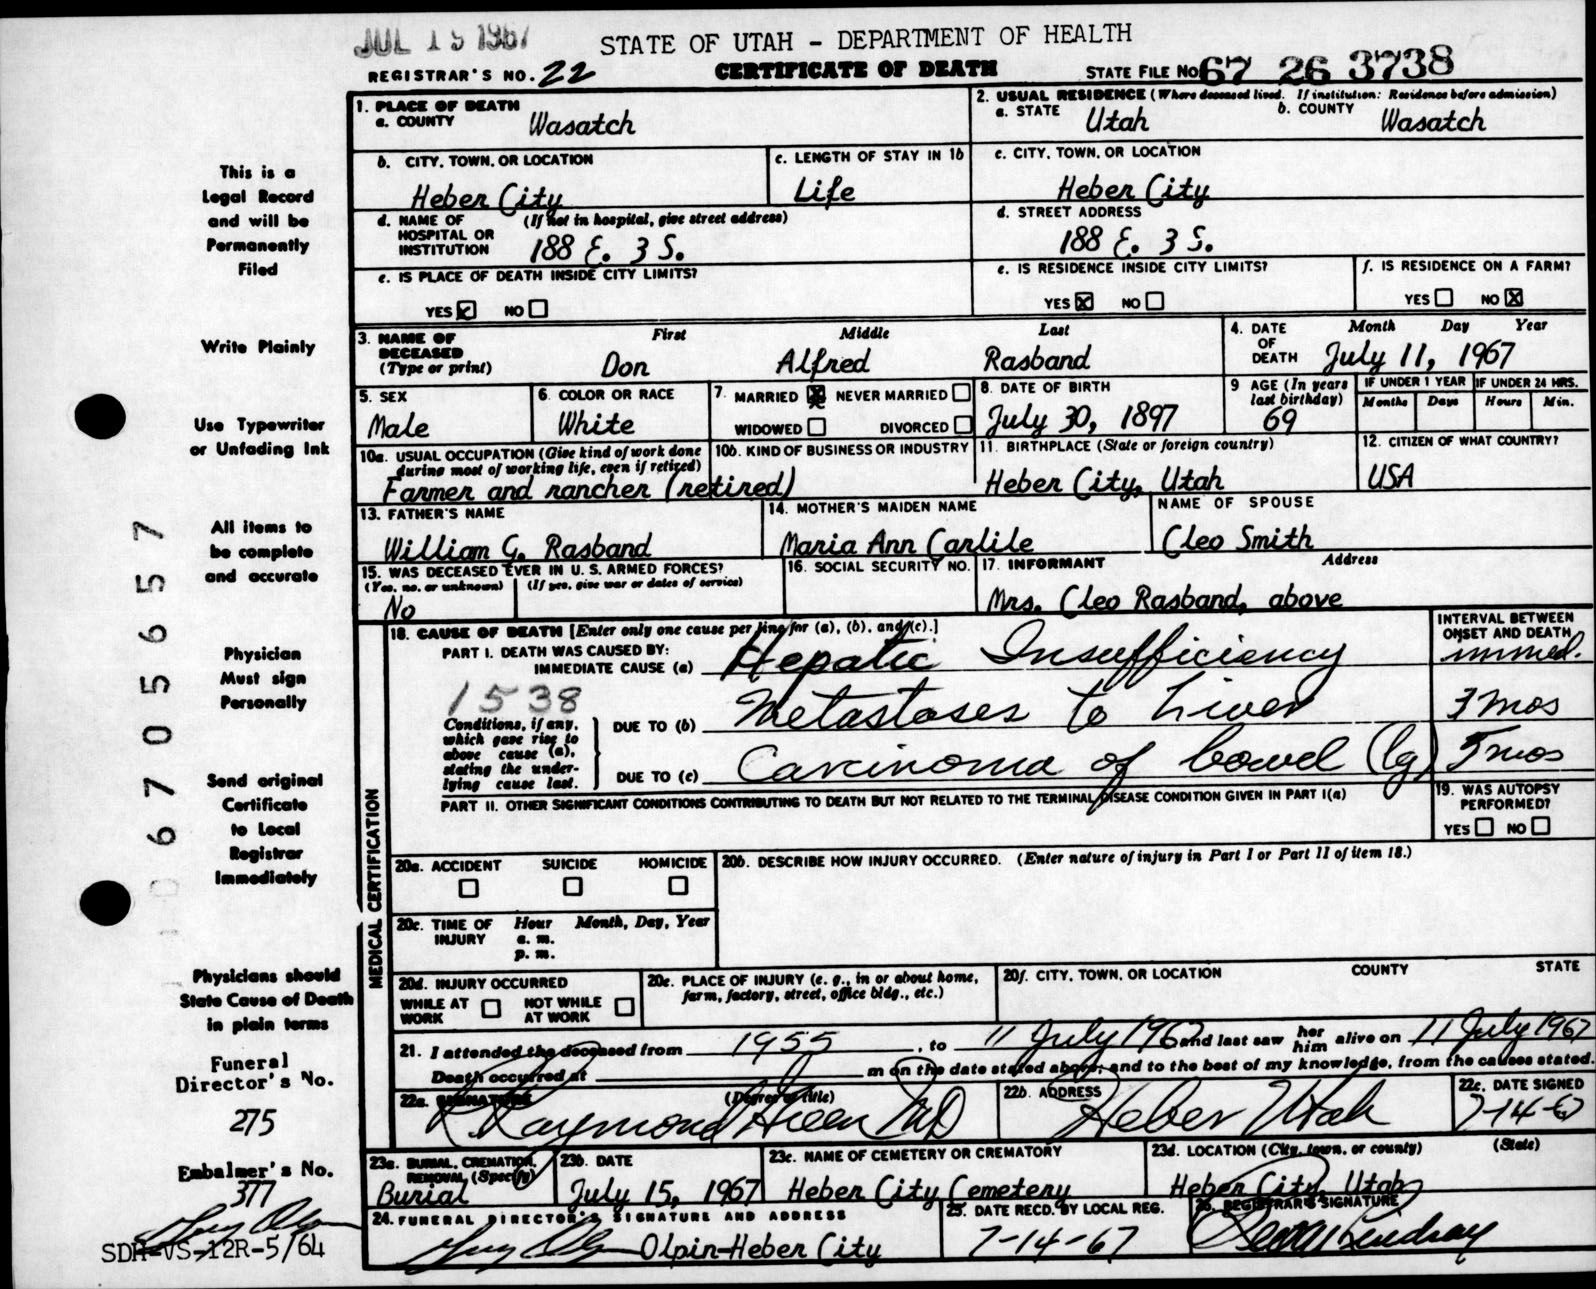 JUL 19 1967
STATE OF UTAH - DEPARTMENT OF HEALTH
REGISTRAR'S NO. 22
CERTIFICATE OF DEATH
STATE FILE No 67 26 3738
1. PLACE OF DEATH
a. COUNTY Wasatch
2. USUAL RESIDENCE (Where deceased lived. If institution: Residence before admission)
a. STATE Utah b. COUNTY Wasatch
b. CITY, TOWN, OR LOCATION Heber City
c. LENGTH OF STAY IN 1b Life
c. CITY, TOWN, OR LOCATION Heber City
d. NAME OF HOSPITAL OR INSTITUTION (If not in hospital, give street address) 188 E. 3 S.
d. STREET ADDRESS 188 E. 3 S.
e. IS PLACE OF DEATH INSIDE CITY LIMITS?
YES NO
e. IS RESIDENCE INSIDE CITY LIMITS?
YES X NO
f. IS RESIDENCE ON A FARM?
YES NO X
3. NAME OF DECEASED (Type or print)
First Middle Last
Don Alfred Rasband
4. DATE OF DEATH Month Day Year
July 11, 1967
5. SEX Male
6. COLOR OR RACE White
7. MARRIED X NEVER MARRIED
WIDOWED DIVORCED
8. DATE OF BIRTH July 30, 1897
9 AGE (In years last birthday) 69
IF UNDER 1 YEAR Months Days
IF UNDER 24 HRS. Hours Min.
10a. USUAL OCCUPATION (Give kind of work done during most of working life, even if retired)
Farmer and rancher (retired)
10b. KIND OF BUSINESS OR INDUSTRY
11. BIRTHPLACE (State or foreign country)
Heber City, Utah
12. CITIZEN OF WHAT COUNTRY?
USA
13. FATHER'S NAME
William G. Rasband
14. MOTHER'S MAIDEN NAME
Maria Ann Carlile
NAME OF SPOUSE
Cleo Smith
15. WAS DECEASED EVER IN U. S. ARMED FORCES?
(Yes, no, or unknown) (If yes, give war or dates of service)
No
16. SOCIAL SECURITY NO.
17. INFORMANT Address
Mrs. Cleo Rasband, above
18. CAUSE OF DEATH [Enter only one cause per line for (a), (b), and (c).]
INTERVAL BETWEEN ONSET AND DEATH
PART I. DEATH WAS CAUSED BY:
IMMEDIATE CAUSE (a) Hepatic Insufficiency immed.
1538
Conditions, if any, which gave rise to above cause (a), stating the underlying cause last.
DUE TO (b) Metastases to Liver 3 mos
DUE TO (c) Carcinoma of bowel (lg) 5 mos
PART II. OTHER SIGNIFICANT CONDITIONS CONTRIBUTING TO DEATH BUT NOT RELATED TO THE TERMINAL DISEASE CONDITION GIVEN IN PART I(a)
19. WAS AUTOPSY PERFORMED?
YES NO
MEDICAL CERTIFICATION
20a. ACCIDENT SUICIDE HOMICIDE
20b. DESCRIBE HOW INJURY OCCURRED. (Enter nature of injury in Part I or Part II of item 18.)
20c. TIME OF INJURY Hour Month, Day, Year
a. m.
p. m.
20d. INJURY OCCURRED
WHILE AT WORK NOT WHILE AT WORK
20e. PLACE OF INJURY (e. g., in or about home, farm, factory, street, office bldg., etc.)
20f. CITY, TOWN, OR LOCATION COUNTY STATE
21. I attended the deceased from 1955, to 11 July 1967 and last saw her him alive on 11 July 1967
Death occurred at m on the date stated above; and to the best of my knowledge, from the causes stated.
22a. SIGNATURE (Degree or title)
R Raymond Green MD
22b. ADDRESS
Heber Utah
22c. DATE SIGNED
7-14-67
23a. BURIAL, CREMATION, REMOVAL (Specify)
Burial
23b. DATE
July 15, 1967
23c. NAME OF CEMETERY OR CREMATORY
Heber City Cemetery
23d. LOCATION (City, town, or county) (State)
Heber City, Utah
24. FUNERAL DIRECTOR'S SIGNATURE AND ADDRESS
Olpin-Heber City
25. DATE RECD. BY LOCAL REG.
7-14-67
26. REGISTRAR'S SIGNATURE
This is a
Legal Record
and will be
Permanently
Filed
Write Plainly
Use Typewriter
or Unfading Ink
All items to
be complete
and accurate
Physician
Must sign
Personally
Send original
Certificate
to Local
Registrar
Immediately
Physicians should
State Cause of Death
in plain terms
Funeral
Director's No.
275
Embalmer's No.
377
SDH-VS-12R-5/64
6705657